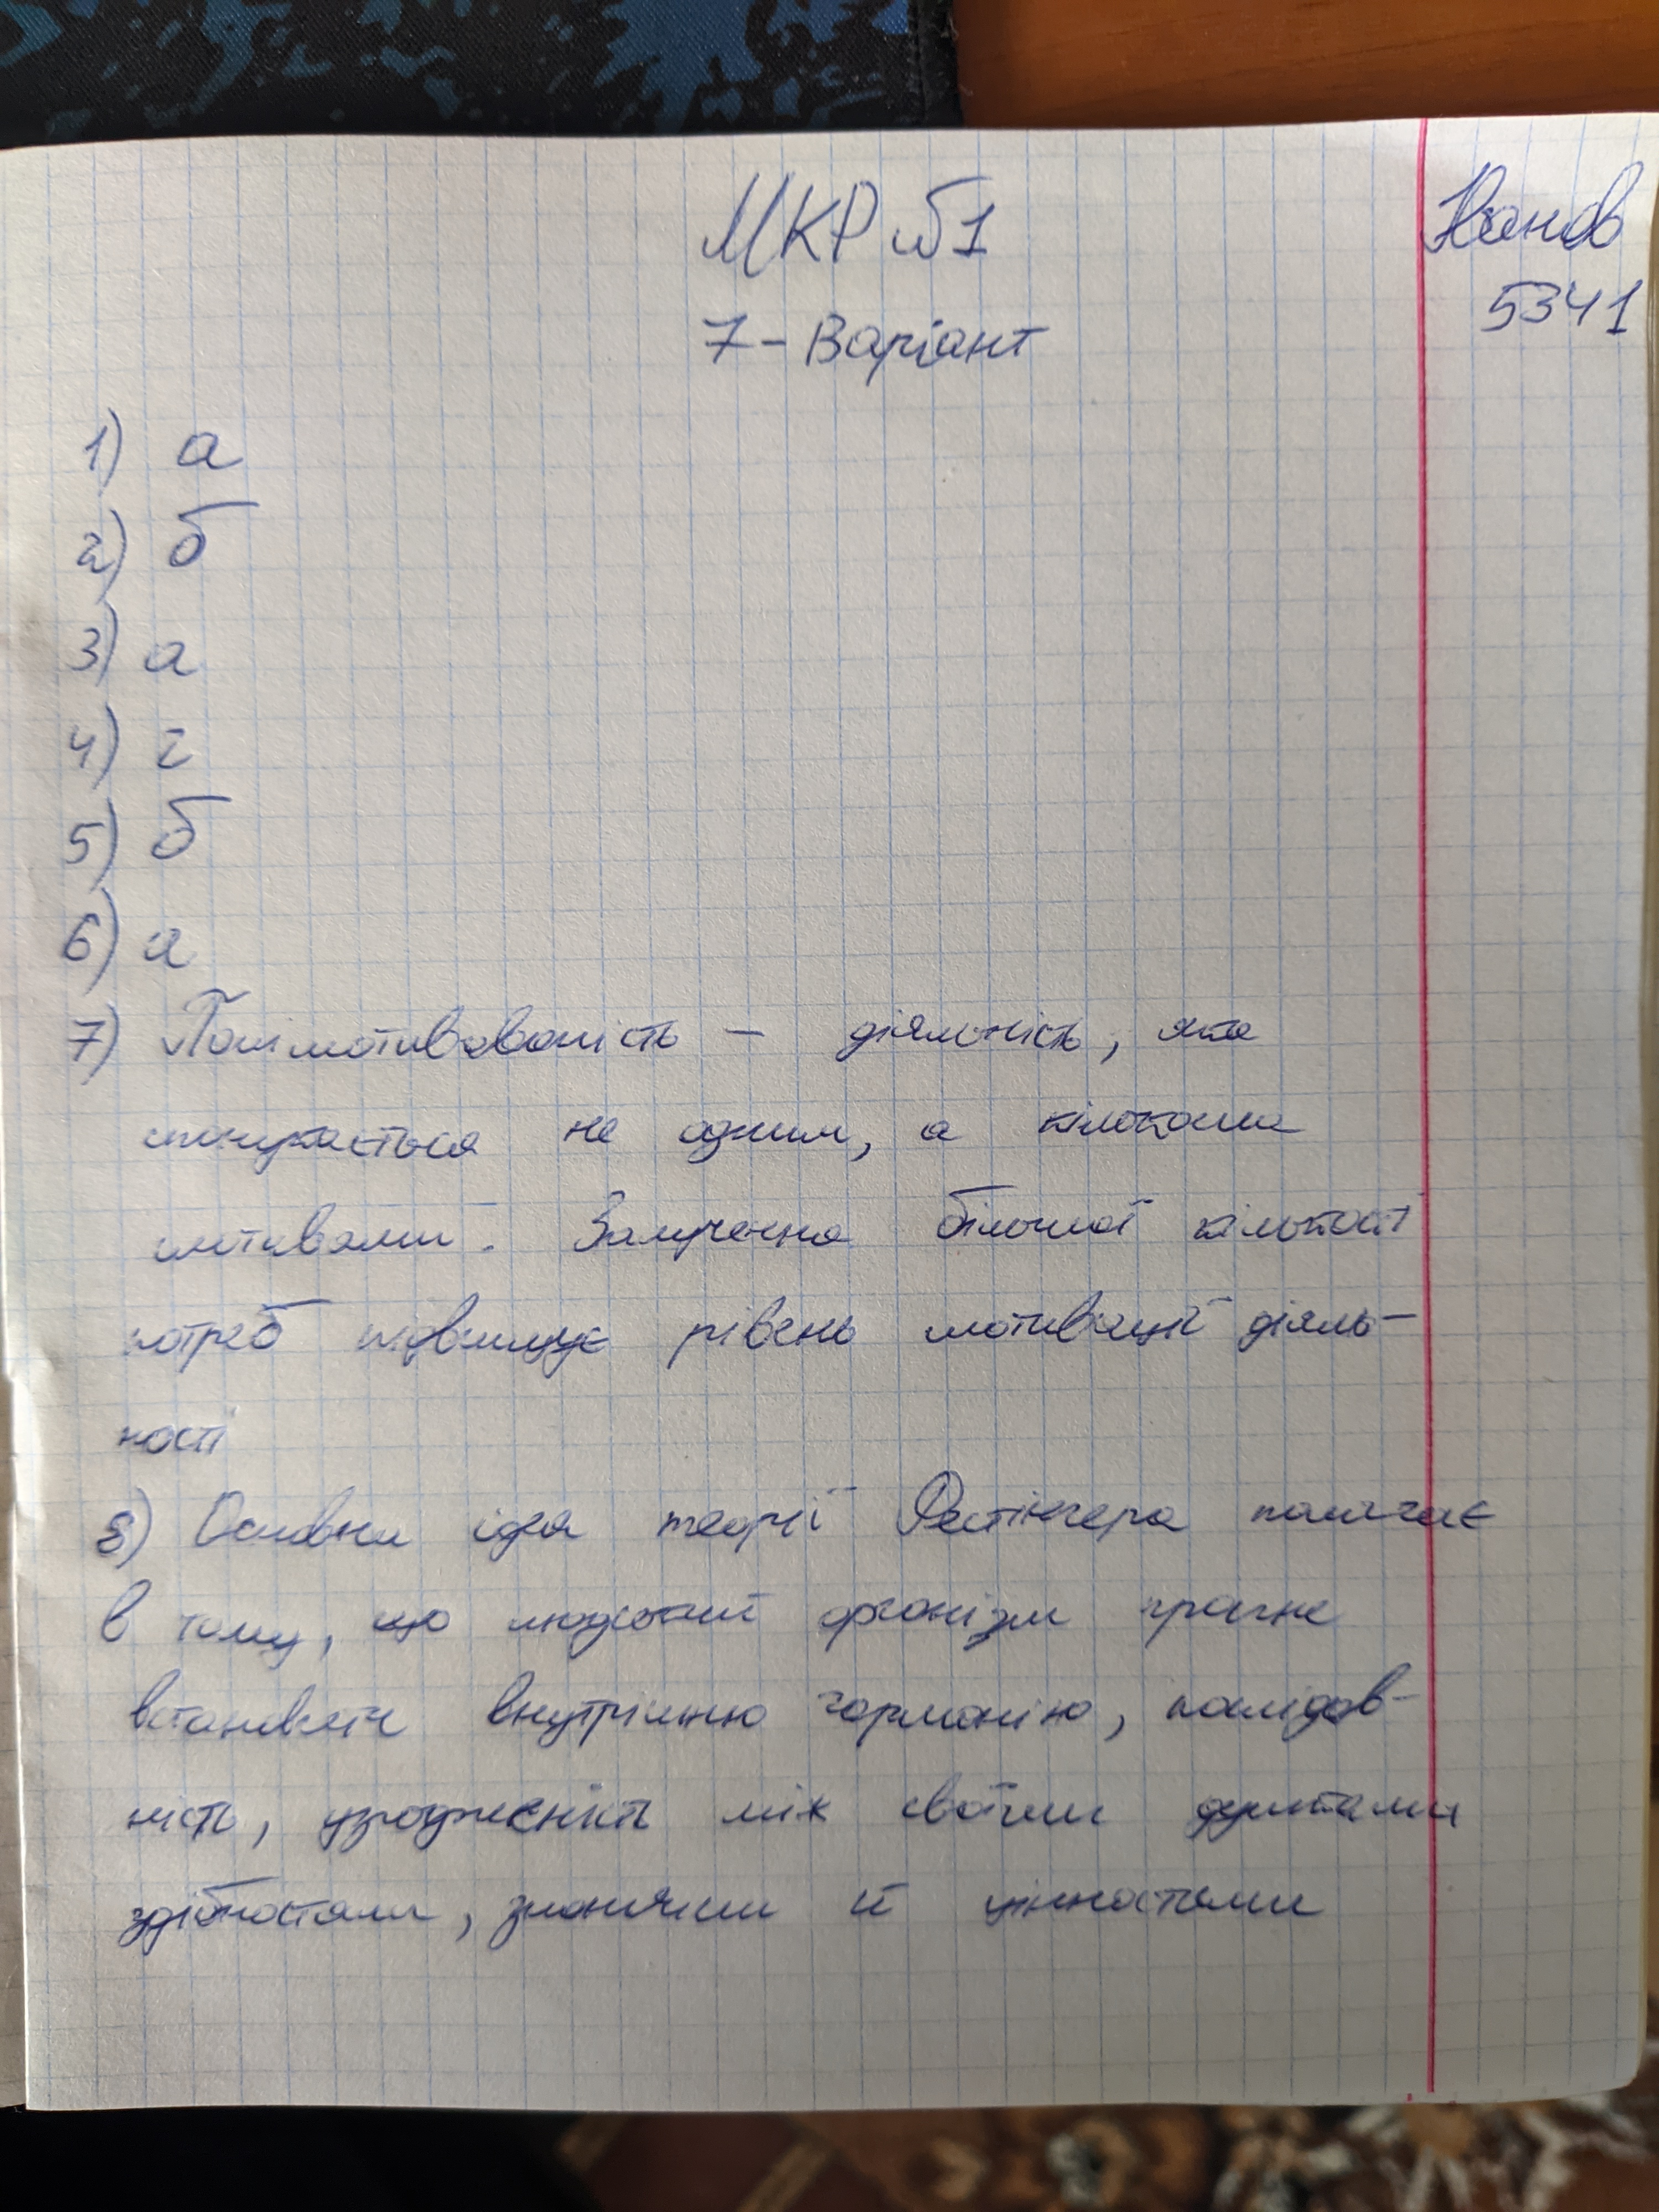 МКР №1
Іванов
5341
7 - Варіант
1) а
2) б
3) а
4) г
5) б
6) а
7) Полімотивованість - діяльність, яка
спонукається не одним, а кількома
мотивами. Залучення більшої кількості
потреб підвищує рівень мотивації діяль-
ності
8) Основна ідея теорії Фестінгера полягає
в тому, що людський організм прагне
встановити внутрішню гармонію, послідов-
ність, узгодженість між своїми думками
здібностями, знаннями й цінностями